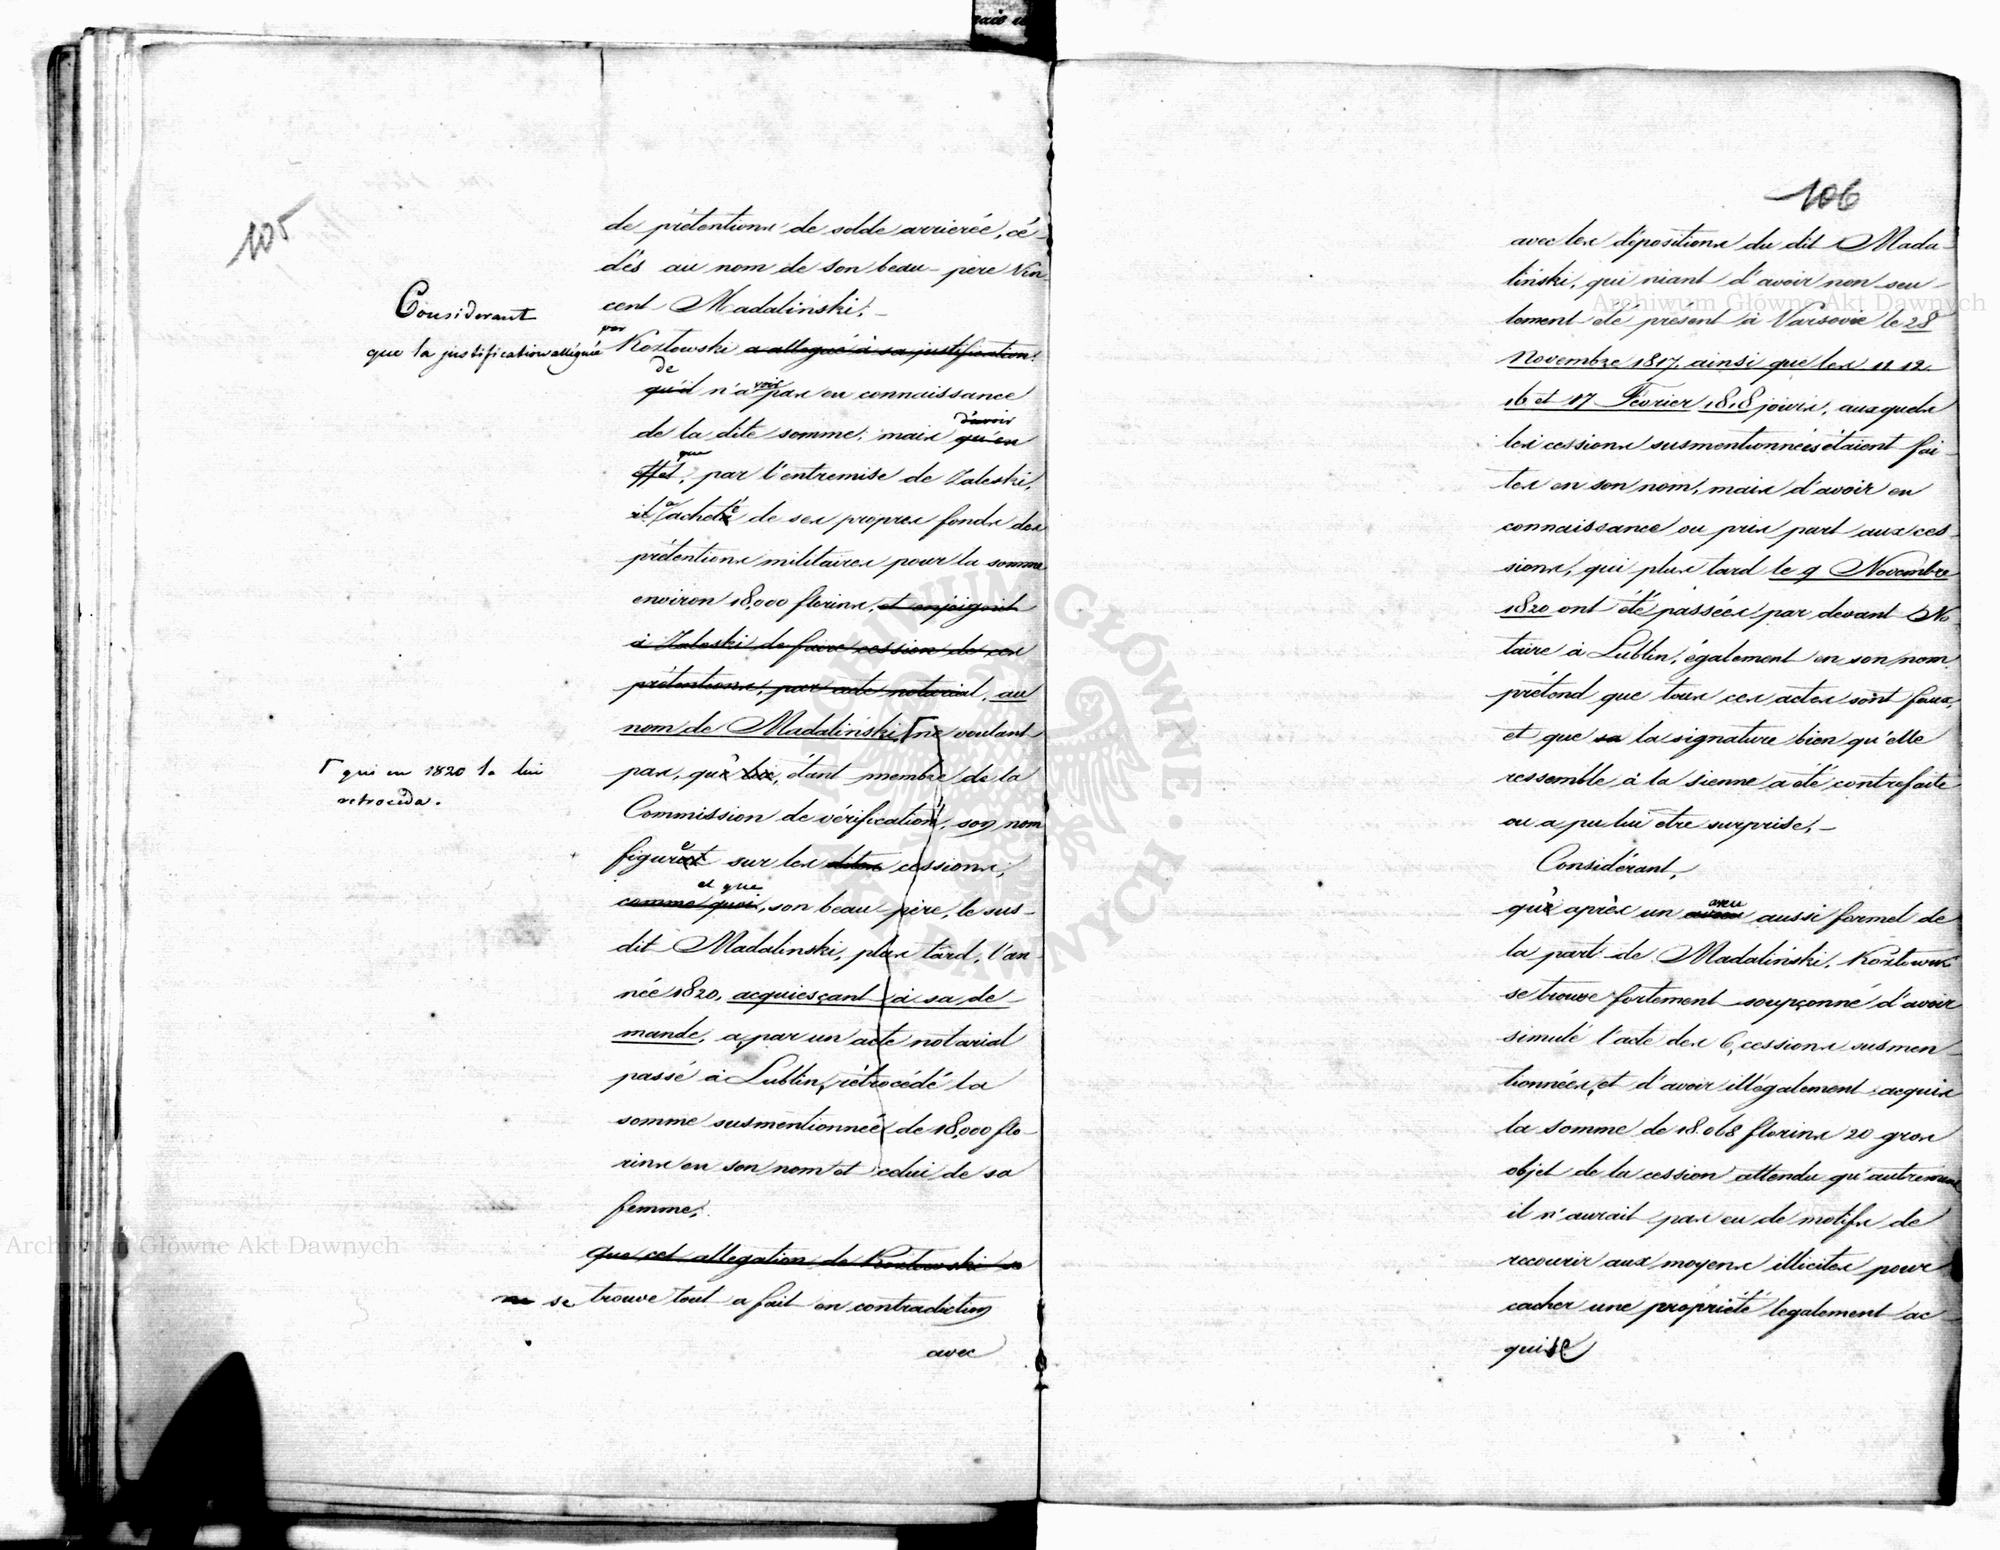 105
de prétentions de solde arrierée, cé-
dés au nom de son beau-père Vin
cent Madalinski.-
Considerant
que la justification alléguée
par
Kozlowski a allegué à sa justification:
de
qu'il n'a voir pas eu connaissance
d'avoir
de la dite somme, mais qu'en
que
effet, par l'entremise de Zaleski,
il a acheté de ses propres fonds des
prétentions militaires pour la somme
environ 18,000 florins, et enjoignit
à Zaleski de faire cession de ces
prétentions, par acte notarial, au
nom de Madalinski, ne voulant
pas, qu'
étant membre de la
Γ qui en 1820 la lui
retroceda.
Commission de vérification, son nom
figure sur les dites cessions,
et que
comme quoi, son beau-père, le sus-
dit Madalinski, plus tard, l'an-
née 1820, acquiesçant à sa de-
mande, a, par un acte notarial
passé à Lublin, rétrocédé la
somme susmentionnée de 18,000 flo-
rins en son nom et celui de sa
femme,
que cet allegation de Kozlowski se
se trouve tout a fait en contradiction
avec
106
avec les dépositions du dit Mada-
linski, qui niant d'avoir non seu-
lement été présent à Varsovie le 28
Novembre 1817, ainsi que les 11 12
16 et 17 Fevrier 1818 jours, auxquels
les cessions susmentionnées étaient fai-
tes en son nom, mais d'avoir eu
connaissance ou pris part aux ces-
sions, qui plus tard le 9 Novembre
1820 ont été passées par devant No-
taire à Lublin, également en son nom,
prétend que tous ces actes sont faux,
et que sa la signature bien qu'elle
ressemble à la sienne a été contrefaite
ou a pu lui etre surprise,-
Considérant,
aveu
qu' après un aussi formel de
la part de Madalinski, Kozlowski
se trouve fortement soupçonné d'avoir
simulé l'acte des 6, cessions susmen-
tionnées, et d'avoir illégalement acquis
la somme de 18.068 florins 20 gros
objet de la cession attendu qu'autrement
il n'aurait pas eu de motifs de
recourir aux moyens illicites pour
cacher une propriété legalement ac-
quise
Archiwum Główne Akt Dawnych
Archiwum Główne Akt Dawnych
ARCHIWUM GŁÓWNE AKT DAWNYCH